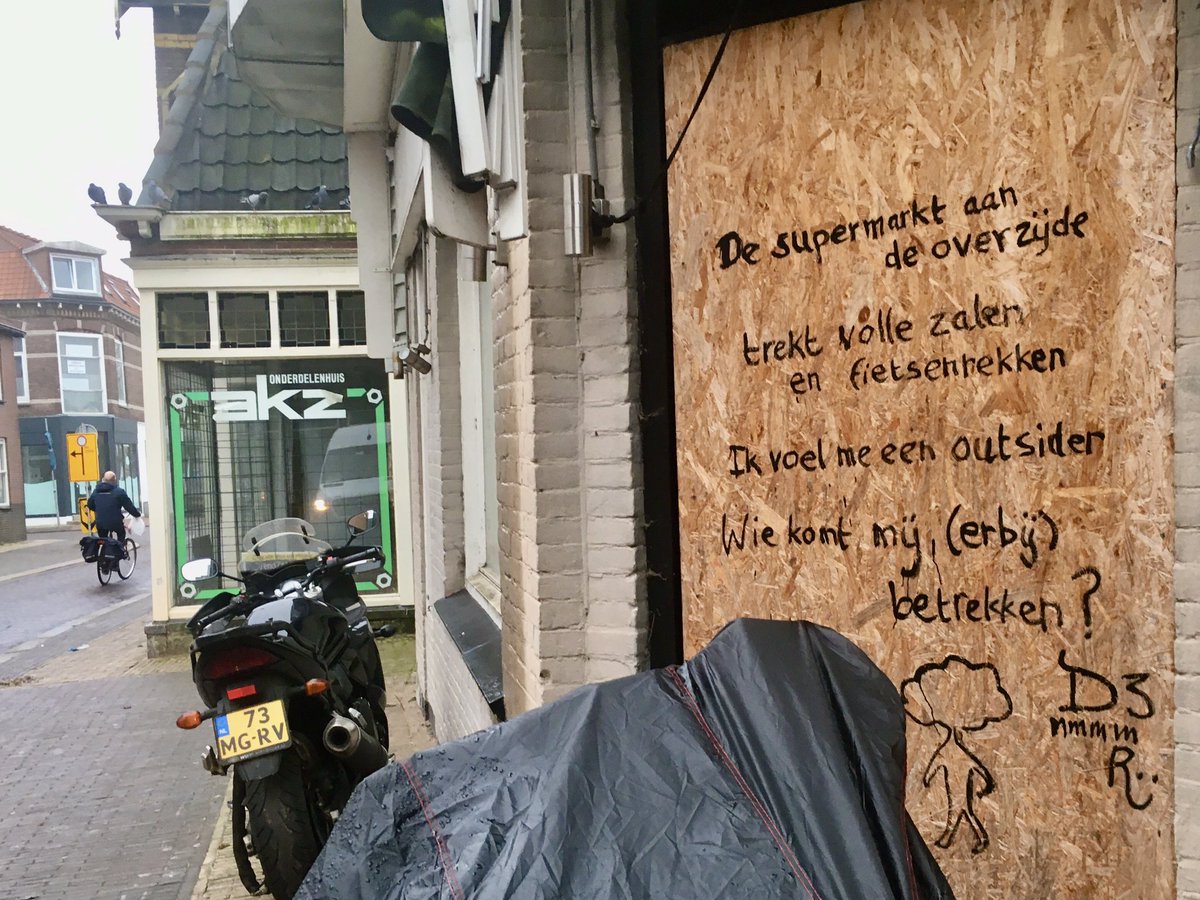 ONDERDELENHUIS
akz
73
MG-RV
NL
De supermarkt aan
de overzijde
trekt volle zalen
en fietsenrekken
Ik voel me een outsider
Wie kont mij, (erbij)
betrekken?
D3
mmmm
R..